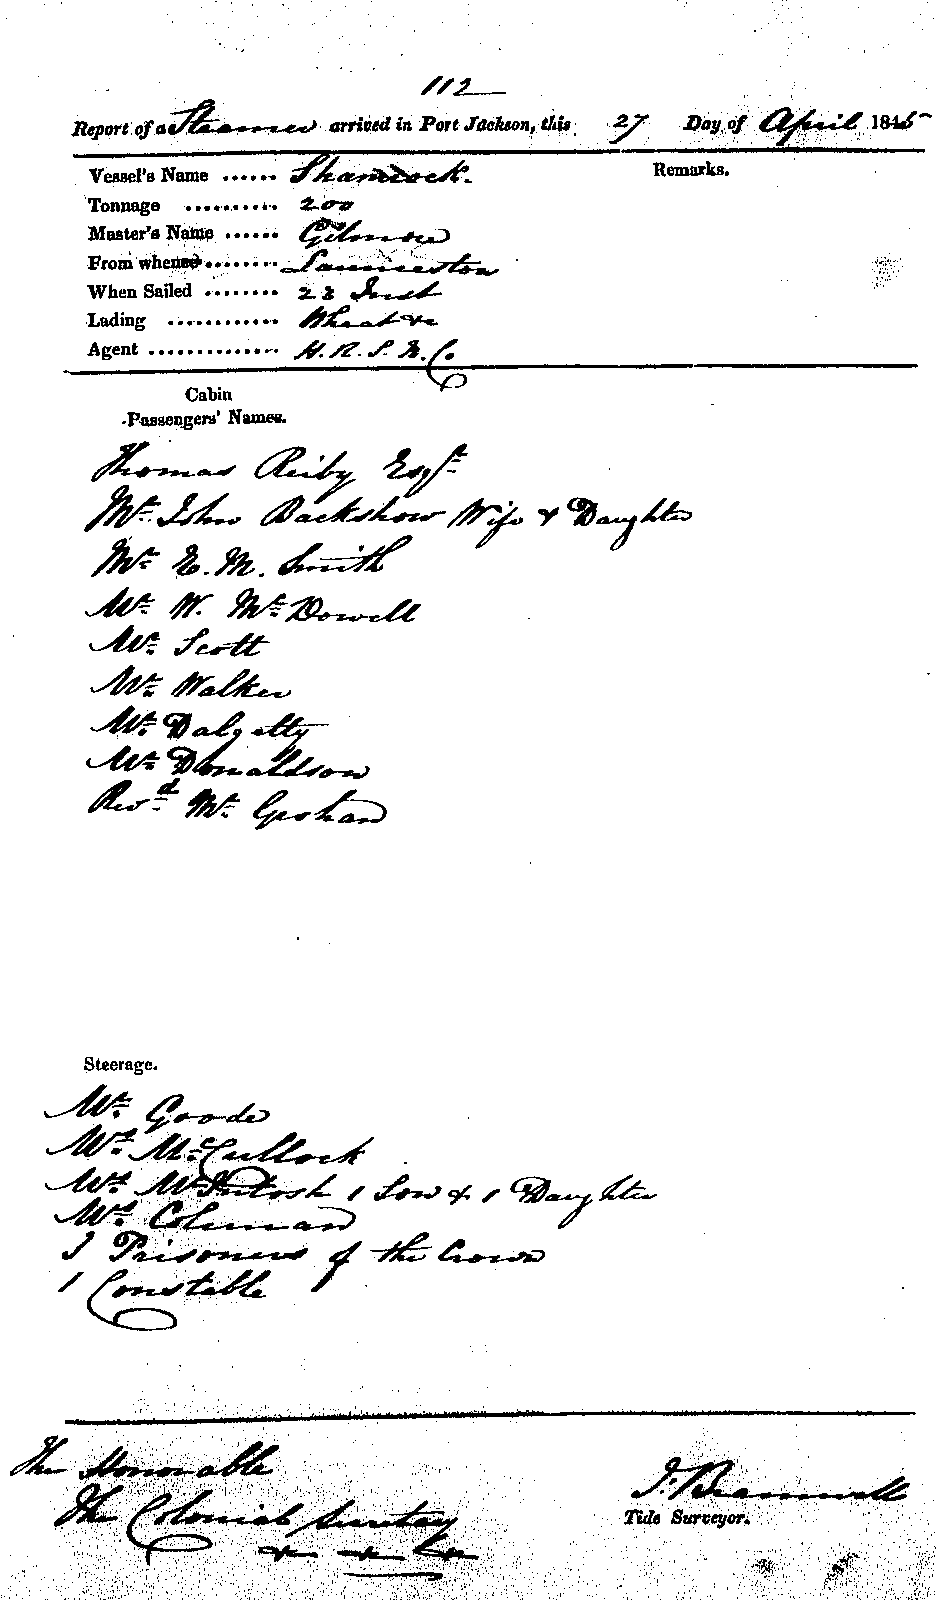 112
Report of a Steamer arrived in Port Jackson, this 27 Day of April 1845
Vessel's Name ...... Shamrock.
Remarks.
Tonnage .......... 200
Master's Name ...... Gilmore
From whence ........ Launceston
When Sailed ........ 23 Inst
Lading ............ Wheat &c
Agent .............. H. R. S. N. Co
Cabin
Passengers' Names.
Thomas Reiby Esqr
Mr. John Backshow Wife & Daughter
Mr E. M. Smith
Mr W. McDowell
Mr Scott
Mr Walker
Mr Dalgetty
Mr Donaldson
Revd Mr
Steerage.
Mr Goode
McCullock
McIntosh 1 Son & 1 Daughter
Coleman
3 Prisoners of the Crown
1 Constable
The Honorable
The Colonial Secretary
&c &c &c
J. Bramwell
Tide Surveyor.